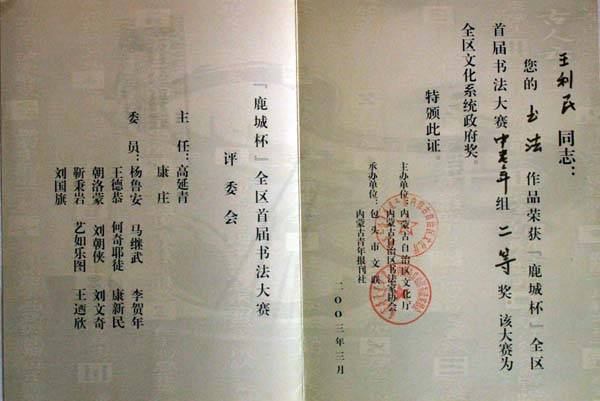 王利民 同志：
您的 书法 作品荣获『鹿城杯』全区
首届书法大赛 中青年 组 二等 奖。该大赛为
全区文化系统政府奖。
特颁此证。
主办单位：内蒙古自治区文化厅
内蒙古自治区书法家协会
承办单位：包头市文联
内蒙古青年报刊社
二〇〇三年三月
『鹿城杯』全区首届书法大赛
评委会
主任：高延青
康庄
委员：杨鲁安 马继武 李贺年
王德恭 何奇耶徒 康新民
朝洛蒙 刘朝侠 刘文奇
靳秉岩 艺如乐图 王迺欣
刘国旗